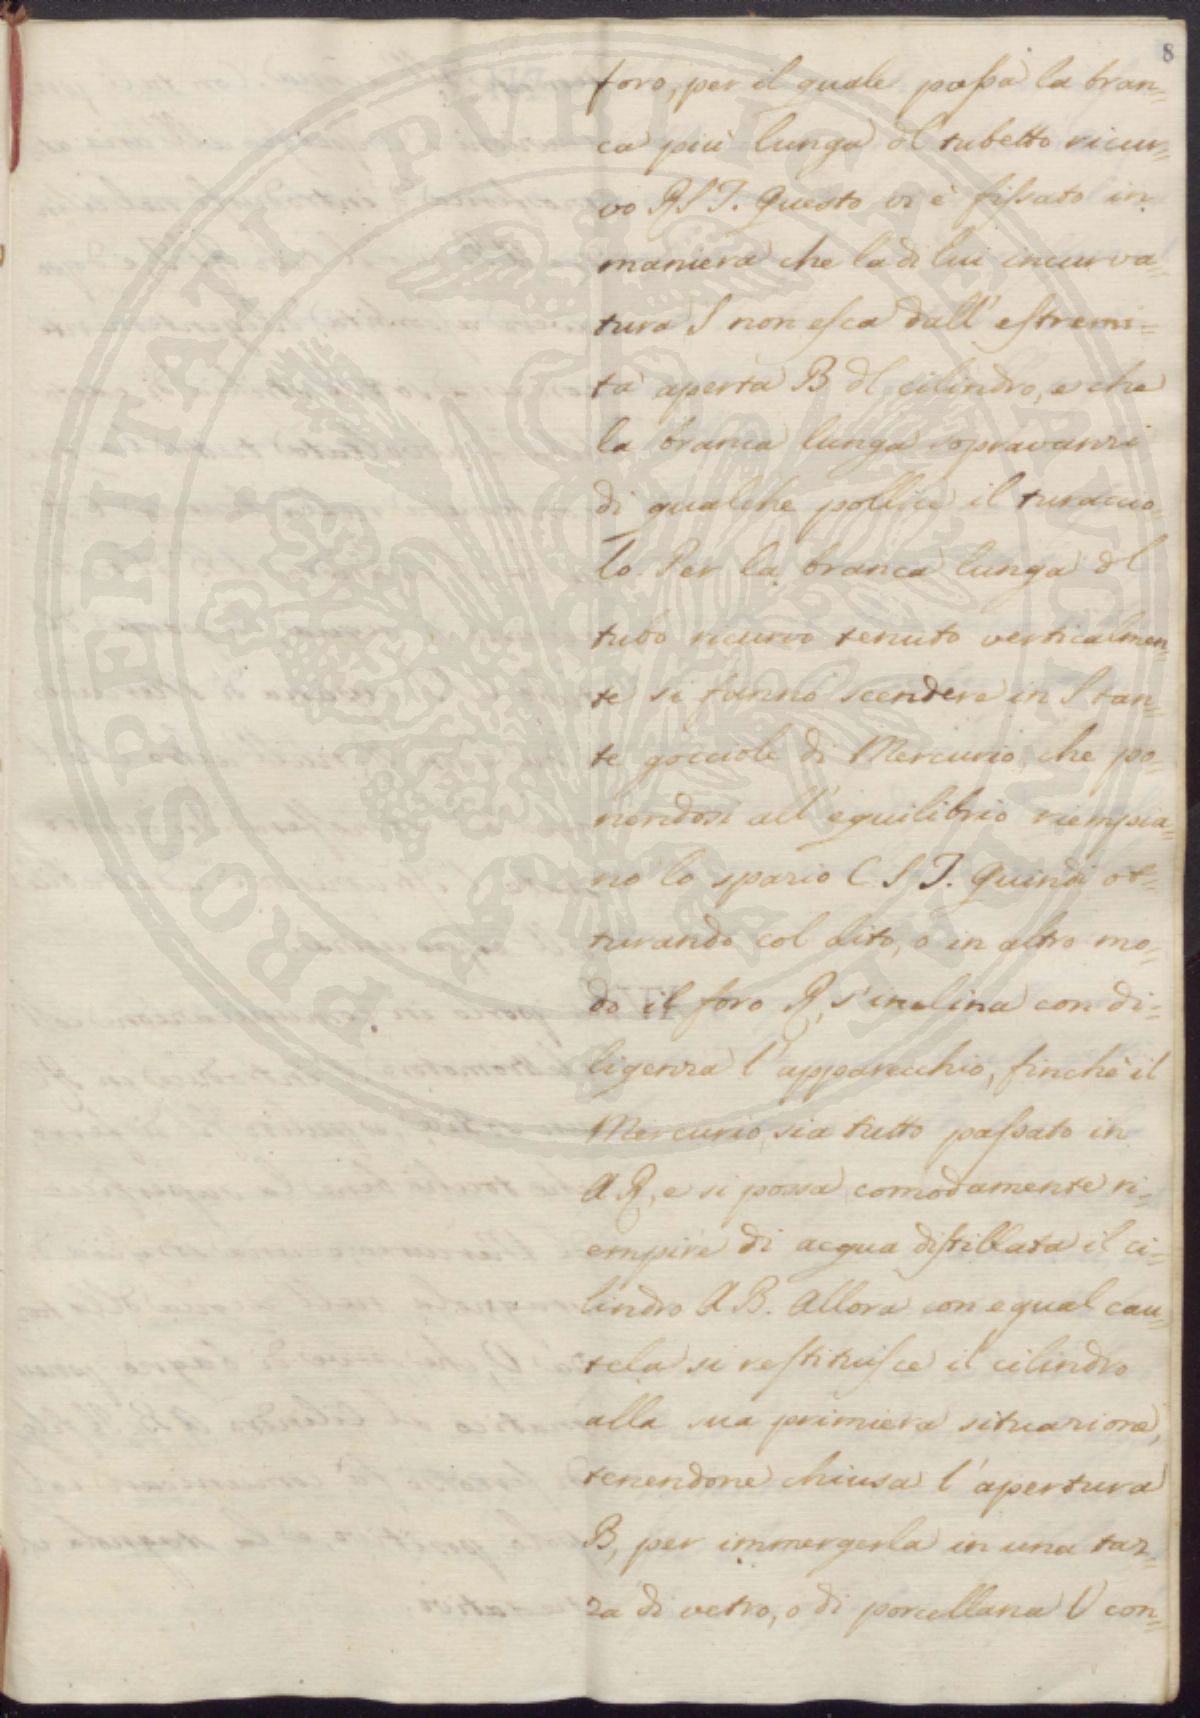 8
foro, per il quale passa la bran=
ca più lunga dl tubetto ricur=
vo RST. Questo vi è fissato in
maniera che la di lui incurva=
tura S non esca dall' estremi=
tà aperta B dl cilindro, e che
la branca lunga sopravanzi
di qualche pollice il turaccio
lo. Per la branca lunga dl
tubo ricurvo tenuto verticalmen=
te si fanno scendere in S tan=
te gocciole di Mercurio, che po=
nendosi all' equilibrio riempia=
no lo spazio C S T. Quindi ot=
turando col dito, o in altro mo=
do il foro R, s'inclina con di=
ligenza l' apparecchio, finchè il
Mercurio sia tutto passato in
A R, e si possa comodamente ri=
empire di acqua distillata il ci=
lindro A B. Allora con egual cau=
tela si restituisce il cilindro
alla sua primiera situazione,
tenendone chiusa l' apertura
B, per immergerla in una taz=
za di vetro, o di porcellana V con=
PROSPERITATI PVBLICAE AVGENDAE